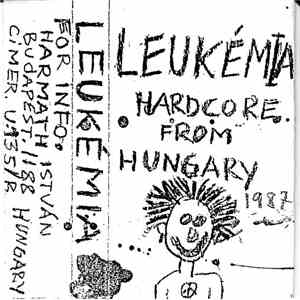 LEUKÉMIA
HARDCORE
FROM
HUNGARY
1987
LEUKÉMIA
FOR INFO.
HARMATH ISTVÁN
BUDAPEST. 1188 HUNGARY
C.MER. U.135/B